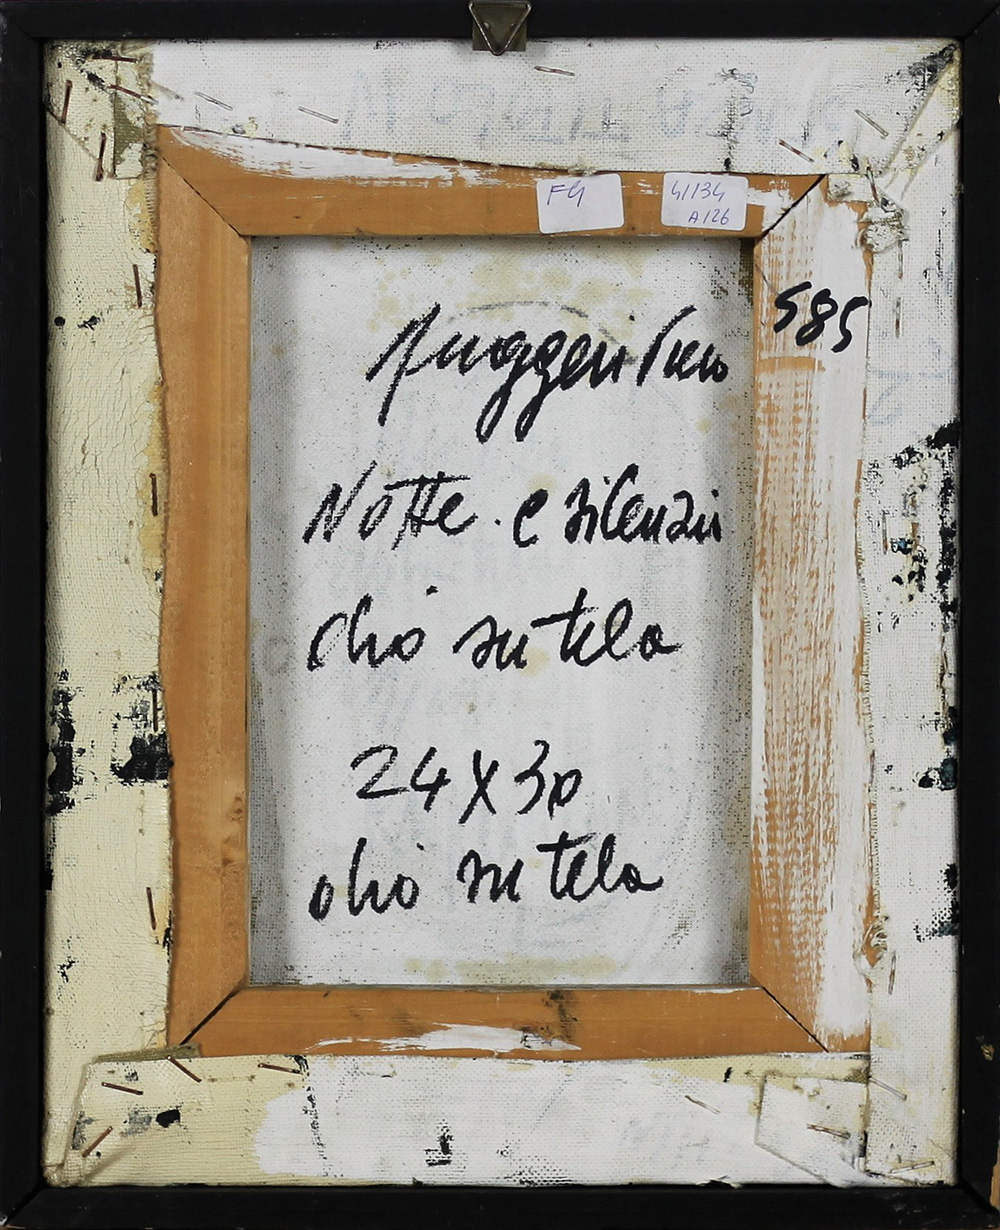 41134
A126
585
Ruggeri Piero
Notte e silenzi
olio su tela
24 X 30
olio su tela